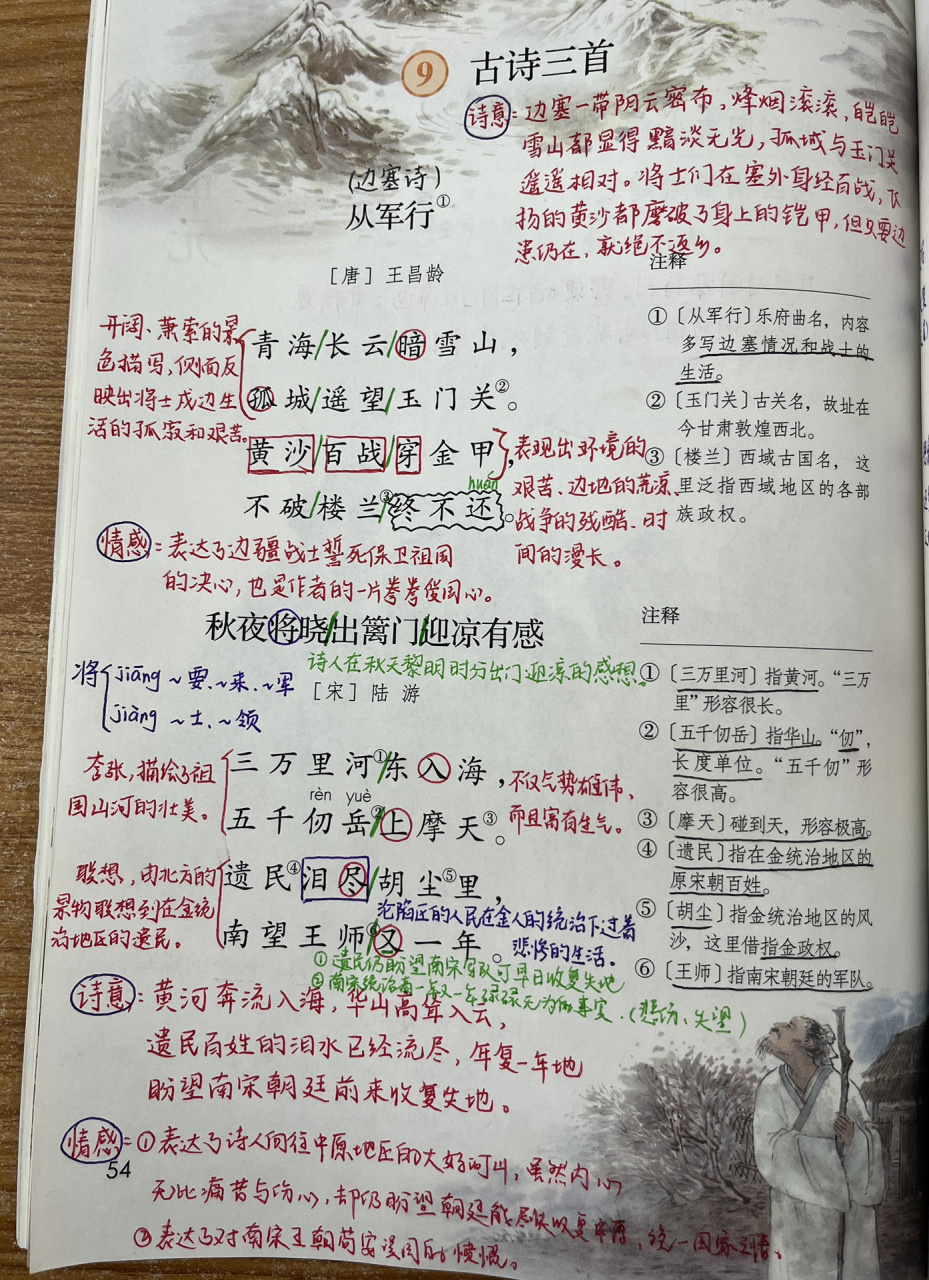 9 古诗三首
诗意：边塞一带阴云密布，烽烟滚滚，皑皑
雪山都显得黯淡无光，孤城与玉门关
遥遥相对。将士们在塞外身经百战，飞
扬的黄沙都磨破了身上的铠甲，但只要边
患仍在，就绝不返乡。
（边塞诗）
从军行①
［唐］王昌龄
开阔、萧索的景
色描写，侧面反
映出将士戍边生
活的孤寂和艰苦。
青海/长云/暗雪山，
孤城/遥望/玉门关②。
黄沙/百战/穿金甲，
huán
不破/楼兰③/终不还。
表现出环境的
艰苦、边地的荒凉、
战争的残酷、时
间的漫长。
情感：表达了边疆战士誓死保卫祖国
的决心，也是作者的一片拳拳爱国心。
注释
①〔从军行〕乐府曲名，内容
多写边塞情况和战士的
生活。
②〔玉门关〕古关名，故址在
今甘肃敦煌西北。
③〔楼兰〕西域古国名，这
里泛指西域地区的各部
族政权。
秋夜将晓/出篱门/迎凉有感
诗人在秋天黎明时分出门迎凉的感想。
［宋］陆游
将
jiāng ～要、～来、～军
jiàng ～士、～领
夸张，描绘了祖
国山河的壮美。
三万里河①/东入海，
rèn yuè
五千仞岳②/上摩天③。
不仅气势雄伟，
而且富有生气。
联想，由北方的
景物联想到在金统
治地区的遗民。
遗民④泪尽/胡尘⑤里，
沦陷区的人民在金人的统治下过着
悲惨的生活。
南望王师⑥/又一年。
①遗民仍盼望南宋军队可早日收复失地
②南宋统治者一年又一年碌碌无为的事实.（悲伤、失望）
注释
①〔三万里河〕指黄河。“三万
里”形容很长。
②〔五千仞岳〕指华山。“仞”，
长度单位。“五千仞”形
容很高。
③〔摩天〕碰到天，形容极高。
④〔遗民〕指在金统治地区的
原宋朝百姓。
⑤〔胡尘〕指金统治地区的风
沙，这里借指金政权。
⑥〔王师〕指南宋朝廷的军队。
诗意：黄河奔流入海，华山高耸入云，
遗民百姓的泪水已经流尽，年复一年地
盼望南宋朝廷前来收复失地。
情感：①表达了诗人向往中原地区的大好河山，虽然内心
无比痛苦与伤心，却仍盼望朝廷能尽快收复中原，统一国家之情。
②表达了对南宋王朝苟安误国的愤慨。
54